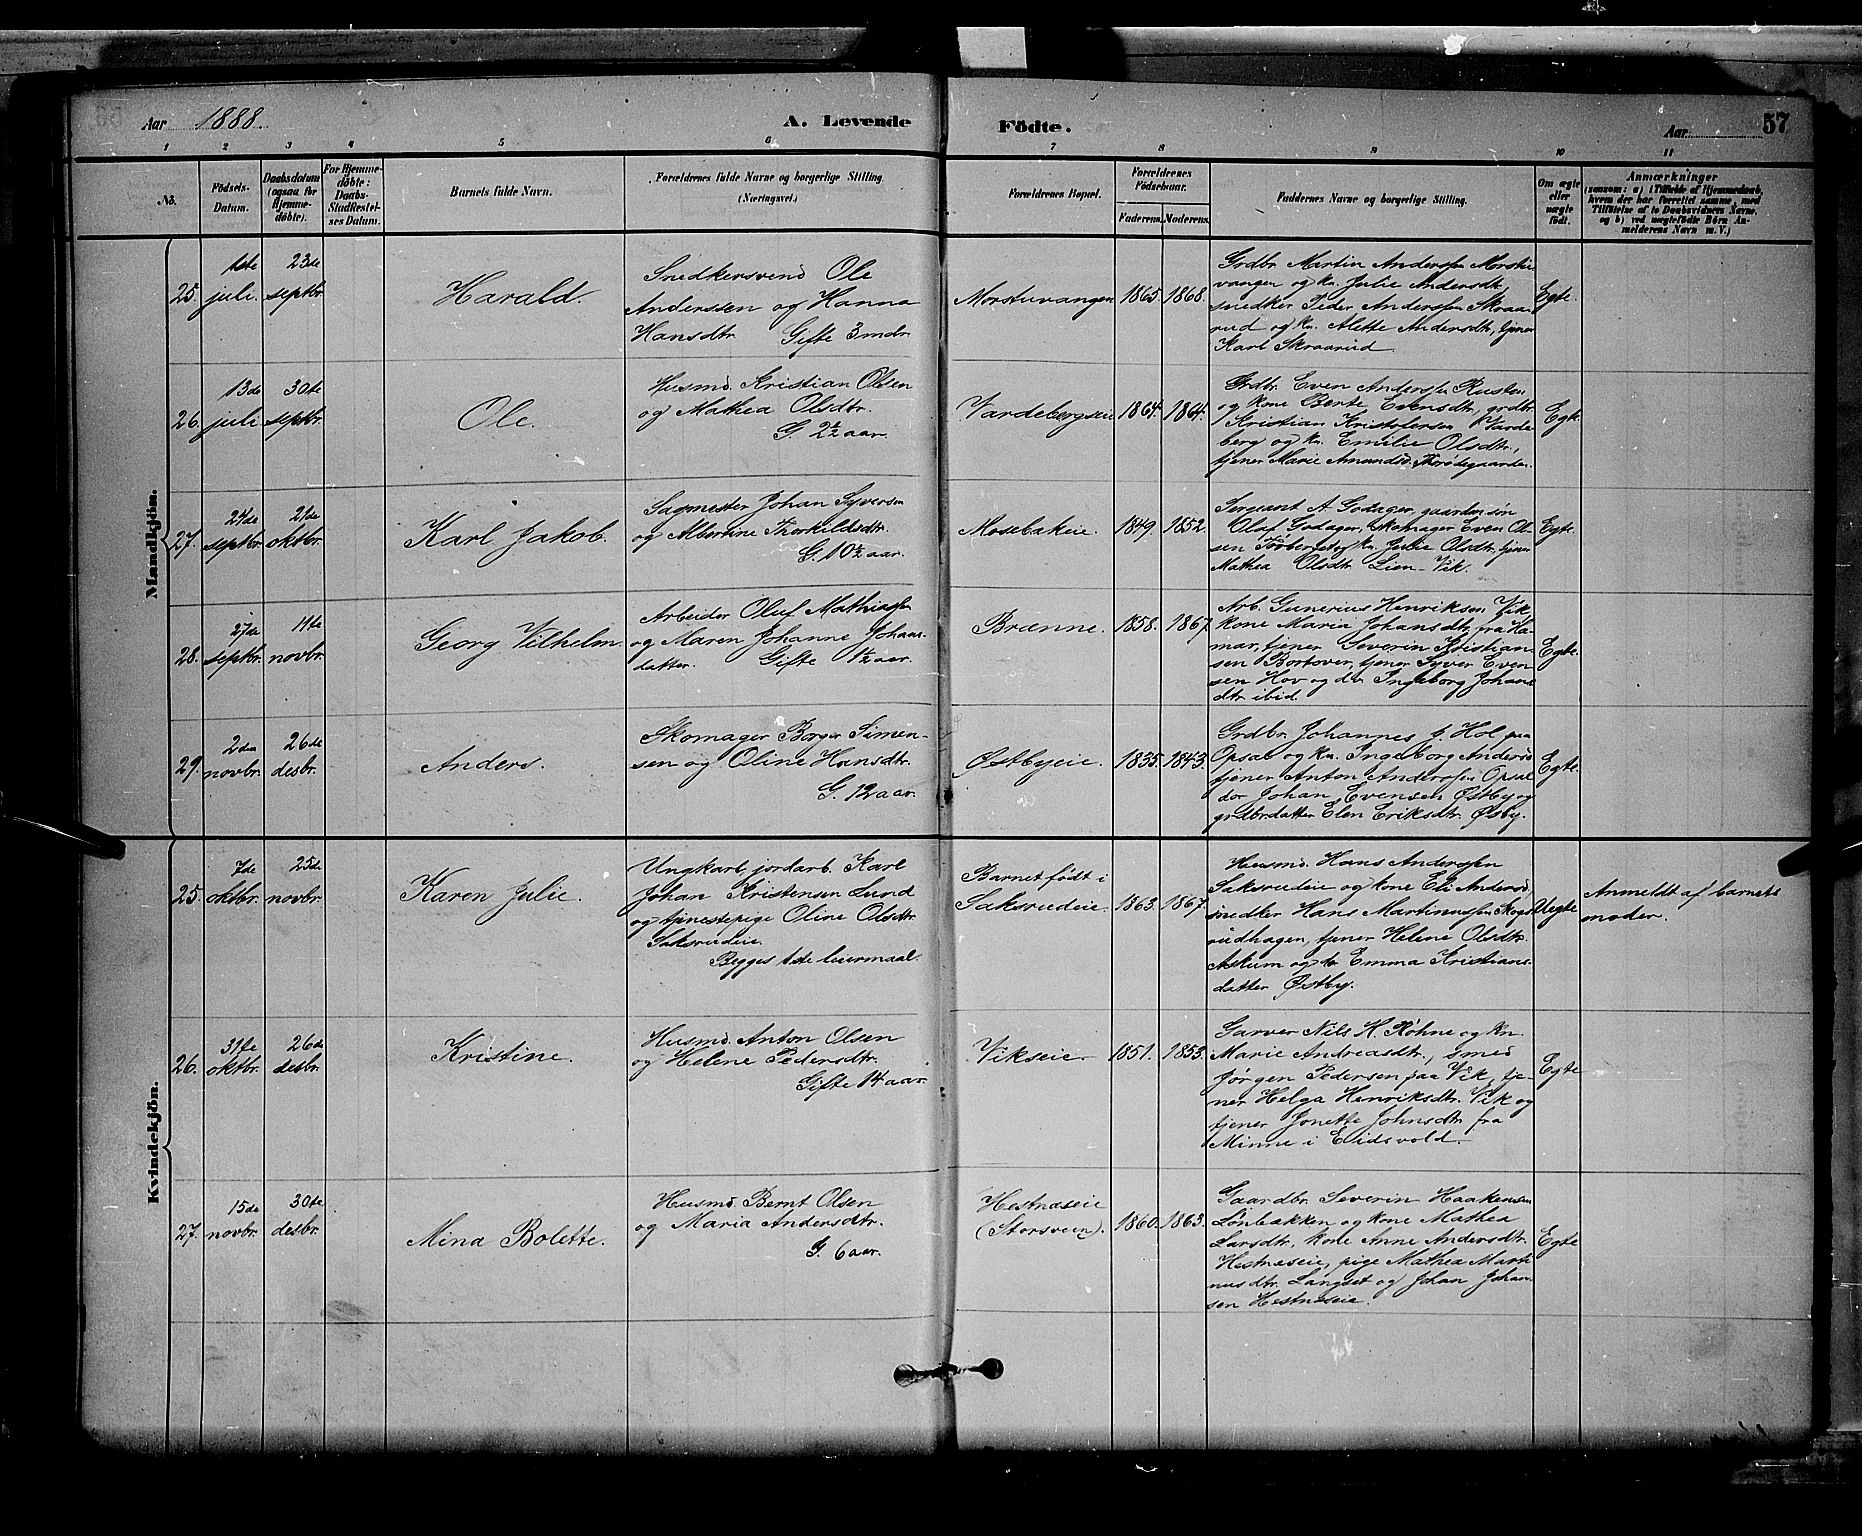 Aar 1888.
A. Levende
Födte.
Aar
57
1 2 3 4 5 6 7 8 9 10 11
No.
Födsels-
Datum.
Daabsdatum
(ogsaa for
Hjemme-
döbte).
For Hjemme-
döbte:
Daabs
Stadfæstel-
ses Datum.
Barnets fulde Navn.
Forældrenes fulde Navne og borgerlige Stilling
(Næringsvei.)
Forældrenes Bopæl.
Forældrenes
Födselsaar.
Faderens. Moderens.
Faddernes Navne og borgerlige Stilling.
Om ægte
eller
uægte
födt.
Anmærkninger
(saasom: a) i Tilfælde af Hjemmedaab,
hvem der har forrettet samme, med
Tilföielse af to Daabsvidners Navne,
og b) ved uægtefödte Börn An-
melderens Navn m. V.)
Mandkjön.
25.
1ste
juli.
23de
septbr.
Harald.
Snedkersvend Ole
Anderssen og Hanna
Hansdtr Gifte 3 mdr.
Morstuvangen
1865. 1868.
Grdbr. Martin Anderssen Morstu-
vangen og kn. Julie Andersdtr,
snedker Peder Anderssen Skraa-
rud og kn. Alette Andersdtr, tjener
Karl Skraarud.
Egte.
26.
13de
juli
30te
septbr.
Ole.
Husmd. Kristian Olsen
og Mathea Olsdtr.
G. 2½ aar.
Vardebergseie
1864. 1864.
Grdbr. Even Anderssen Rusten
og kone Berte Evensdtr, grdbr
Kristian Kristofersen Varde-
berg og kn. Emilie Olsdtr,
tjener Marie Amundsd.
Egte.
27.
24de
septbr.
21de
oktbr.
Karl Jakob.
Sagmester Johan Syversen
og Albertine Thorkildsdtr.
G. 10½ aar.
Mosebakeie.
1849. 1852.
Sergeant A. Godager, gaardmsön
Olaf Godager, skomager Even Ol-
sen og kn. Julie Olsdtr, tjener
Mathea Olsdtr Lien-Vik.
Egte.
28.
27de
septbr.
11te
novbr.
Georg Vilhelm.
Arbeider Oluf Mathiassen
og Maren Johanne Johans-
datter. Gifte 1½ aar.
Brænne.
1858. 1867.
Arb. Gunerius Henriksen Vik,
kone Maria Johansdtr, fra Ha-
mar, tjener Severin Kristian-
sen Bortover, tjener Syver Even-
sen Hov og do Ingeborg Johans
dtr ibid.
Egte.
29.
2den
novbr.
26de
desbr.
Anders.
Skomager Borger Simen-
sen og Oline Hansdtr.
G. 12 aar.
Østbyeie.
1835. 1843.
Grdbr. Johannes p. Hol paa
Opsal og kn. Ingeborg Andersd
tjener Anton Anderssen Opsal
do Johan Evensen Østby og
grdbrdatter Elen Eriksdtr. Østby.
Egte.
Kvindekjön.
25.
7de
oktbr.
25de
novbr.
Karen Julie.
Ungkarl, jordarb. Karl
Johan Kristensen Lund
og tjenestepige Oline Olsdtr
Saksrudeie.
Begges 1ste leiermaal.
Barnet født i
Saksrudeie.
1863. 1867.
Husmd. Hans Anderssen
Saksrudeie og kone Eli Andersd.
snedker Hans Martinussen Skogs-
rudhagen, tjener Helene Olsdtr.
Askum og do Emma Kristians-
datter Østby.
Uegte
Anmeldt af barnets
moder.
26.
31te
oktbr.
26de
desbr.
Kristine.
Husmd. Anton Olsen
og Helene Pedersdtr.
Gifte 14 aar.
Vikseie.
1851. 1853.
Garver Nils H. Röhne og kn.
Marie Andreasdtr, smed
Jørgen Pedersen paa Vik, tje-
ner Helga Henriksdtr. Vik og
tjener Jonette Johnsdtr fra
Minne i Eidsvold.
Egte
27.
15de
novbr.
30te
desbr.
Mina Bolette.
Husmd Bernt Olsen
og Maria Andersdtr.
G. 6 aar.
Hestnæseie
(Storsveen).
1860. 1863.
Gaardbr. Severin Haakensen
Lönbakken og kone Mathea
Larsdtr, kone Anne Andersdtr.
Hestnæseie, pige Mathea Marti-
nusdtr. Langset og Johan Johan-
sen Hestnæseie.
Egte